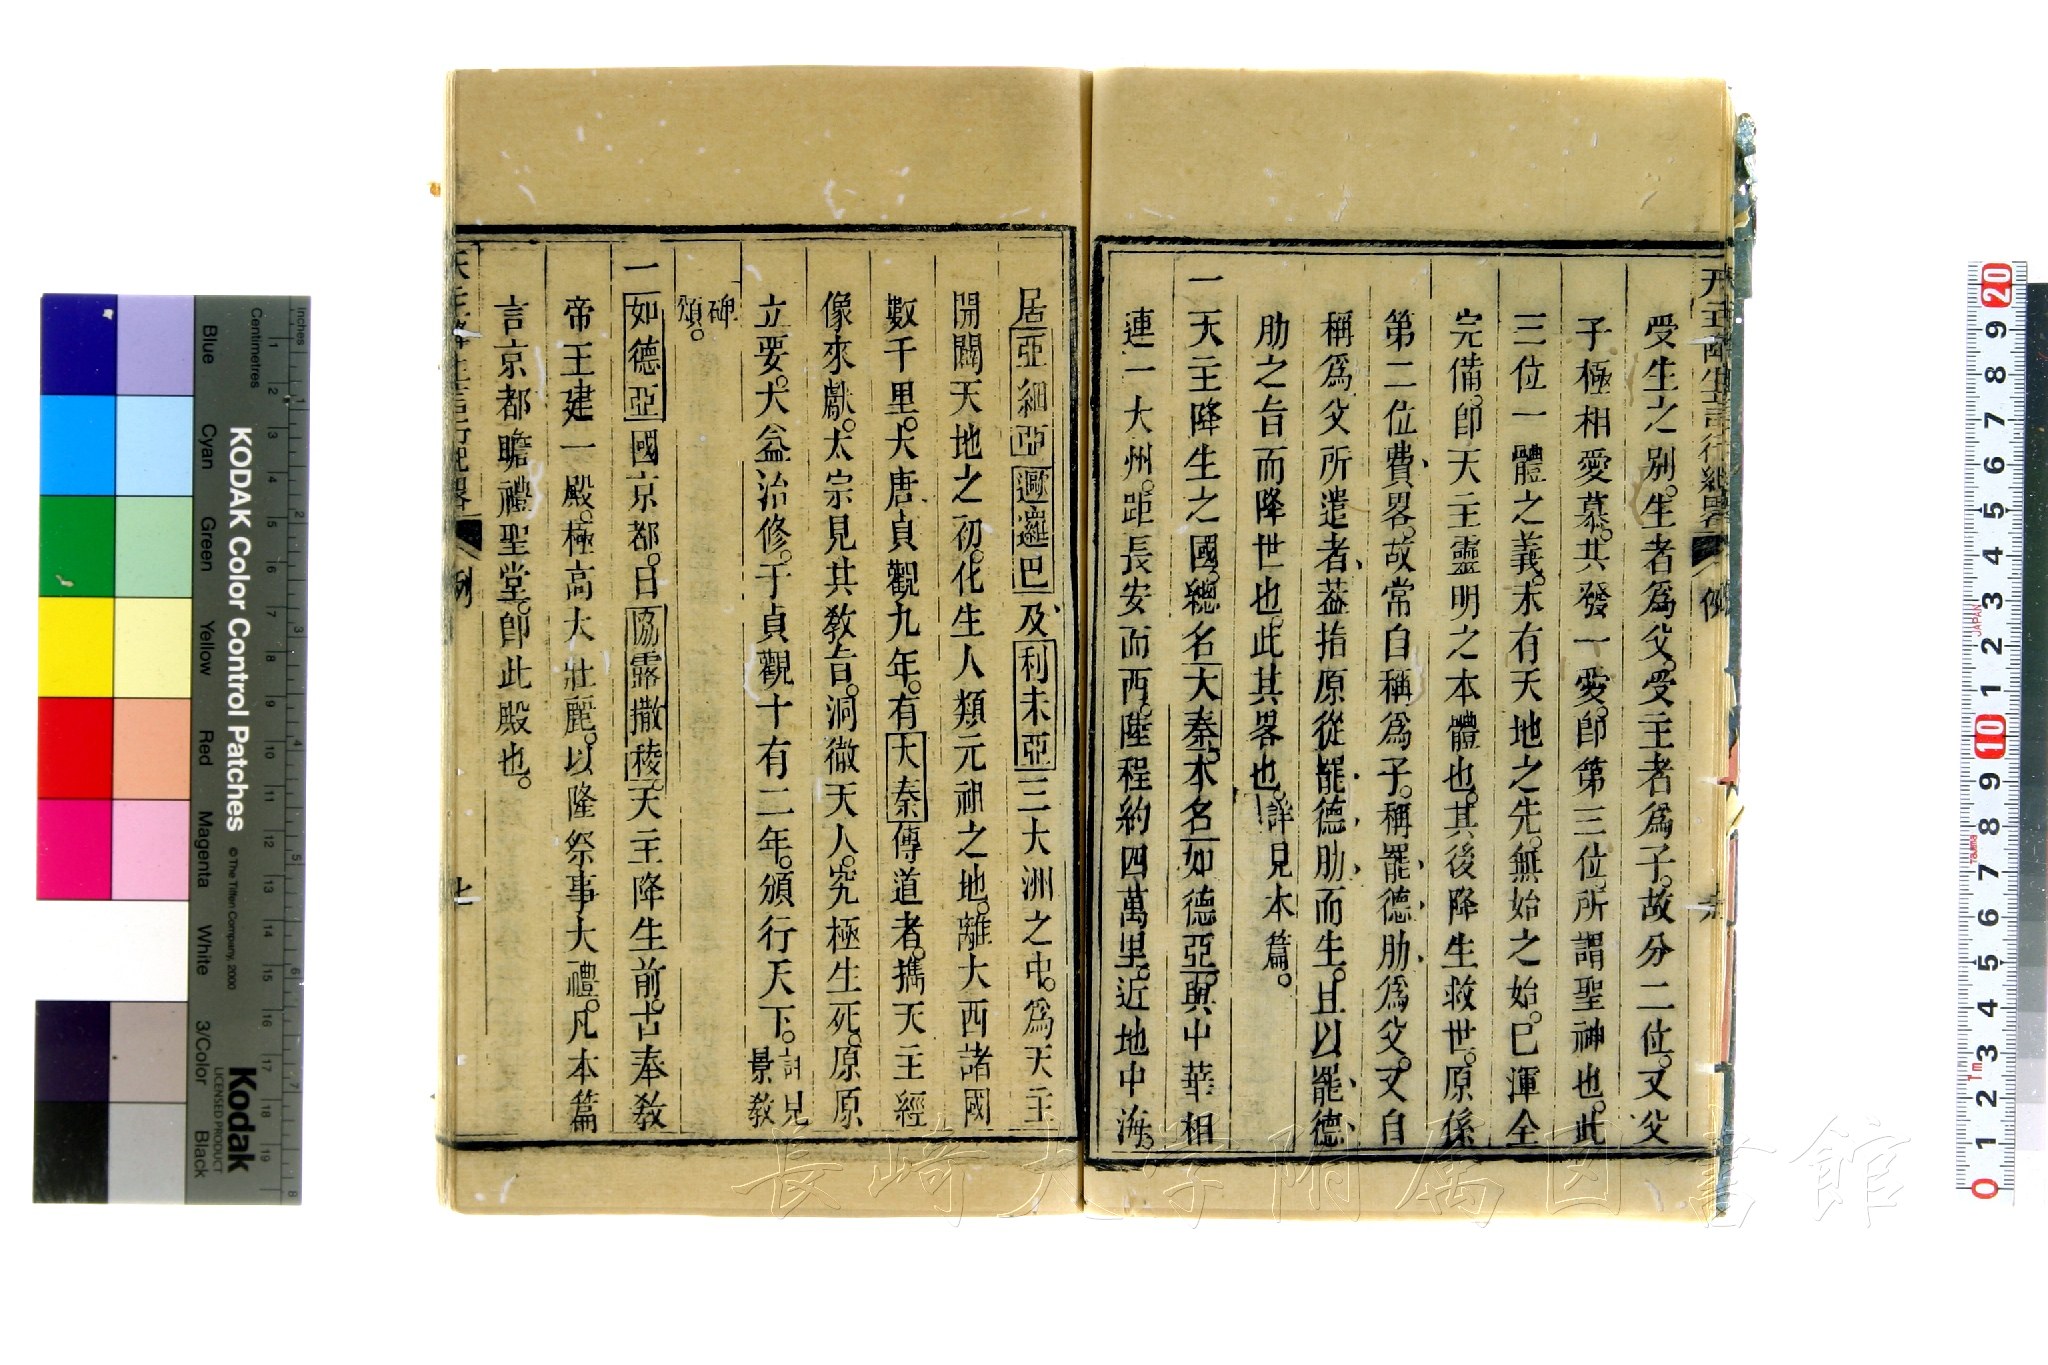 天主降生言行紀畧 例
受生之别。生者為父。受生者為子。故分二位。又父
子極相愛慕。其發一愛。卽第三位。所謂聖神也。此
三位一體之義。未有天地之先。無始之始。已渾全
完備。卽天主靈明之本體也。其後降生救世。原係
第二位費畧。故常自稱爲子。稱罷德肋爲父。又自
稱爲父所遣者、葢指原從罷德肋而生。且以罷德
肋之旨而降世也。此其畧也。詳見本篇。
一天主降生之國。總名大秦。本名如德亞。與中華相
連一大州。距長安而西。陸程約四萬里。近地中海。
居亞細亞歐邏巴及利未亞三大洲之中。爲天主
開闢天地之初。化生人類元祖之地。離大西諸國
數千里。大唐貞觀九年。有大秦傳道者。攜天主經
像來獻。太宗見其敎旨。洞徹天人。究極生死。原原
立要。大益治修。于貞觀十有二年。頒行天下。詳見景敎
碑頌。
一如德亞國京都。曰協露撒稜。天主降生前。古奉敎
帝王建一殿。極高大壯麗。以隆祭事大禮。凡本篇
言京都瞻禮聖堂。卽此殿也。
天主降生言行紀畧 例 七
長崎大学附属図書館
KODAK Color Control Patches
© The Tiffen Company, 2000
Kodak
LICENSED PRODUCT
Inches
Centimetres
Blue
Cyan
Green
Yellow
Red
Magenta
White
3/Color
Black
JAPAN